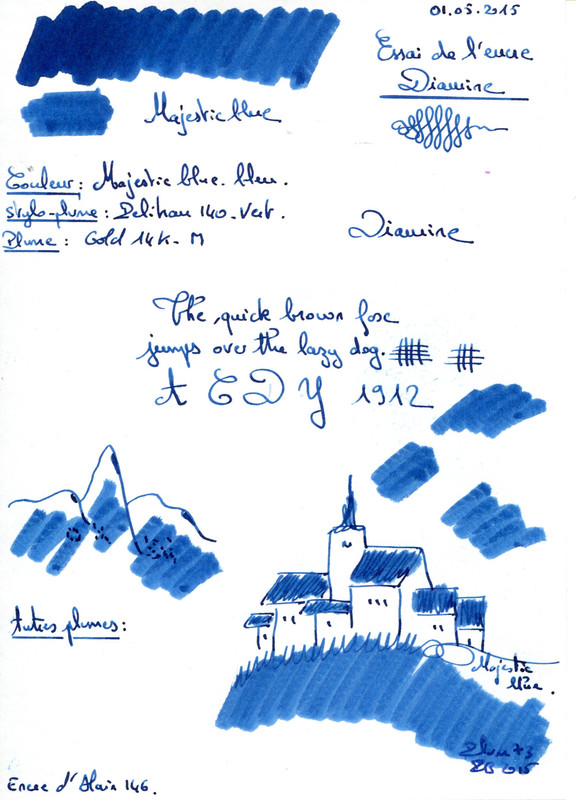 01.05.2015
Essai de l'encre
Diamine
Majestic blue
Couleur : Majestic blue. bleu.
Stylo-plume : Pelikan 140 - Vert.
Plume : Gold 14K - M
Diamine
The quick brown fox
jumps over the lazy dog.
A C D Y 1912
Autres plumes :
Majestic
blue.
2015
Encre d'Alain 146.